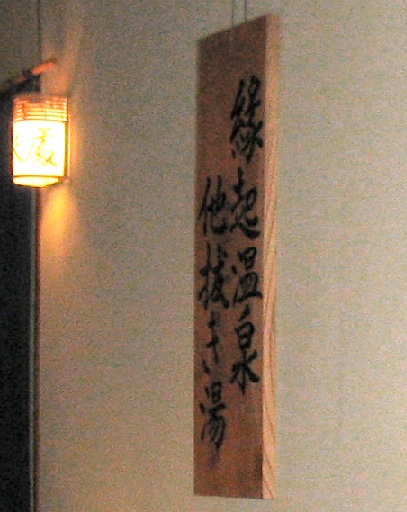 縁起温泉
他抜き湯